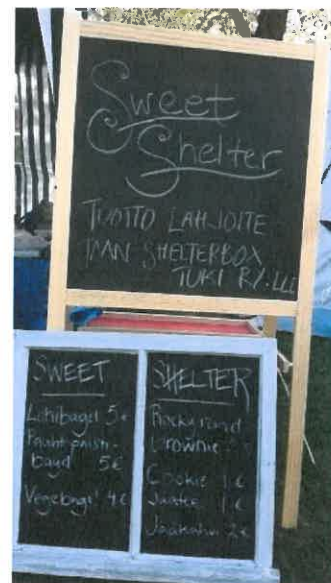 Sweet
Shelter
TUOTTO LAHJOITE
TAAN SHELTERBOX
TUKI RY:LLE
SWEET
Lohibagel 5€
bagel 5€
Vegebagel 4€
SHELTER
Rockyroad
brownie
Cookie 1€
Jäätee 1€
Jääkahvi 2€